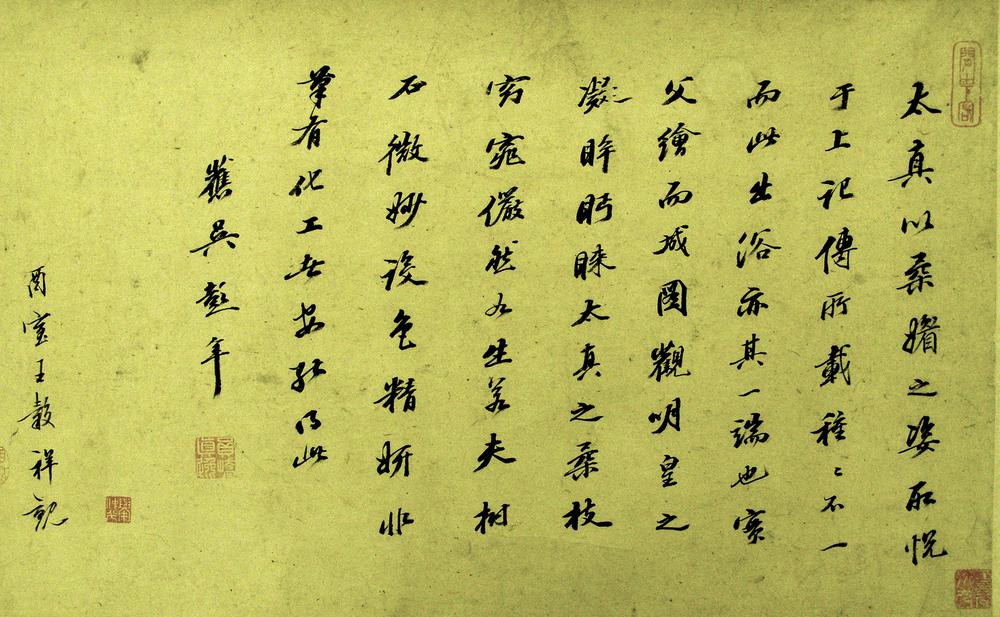 太真以柔媚之姿取悅
于上記傳所載種〻不一
而此出浴亦其一端也實
父繪而成圖觀明皇之
凝眸眄睞太真之柔枝
窈窕儼然如生若夫樹
石微妙設色精妍非
筆有化工者安能得此
舊吳彭年
酉室王穀祥觀